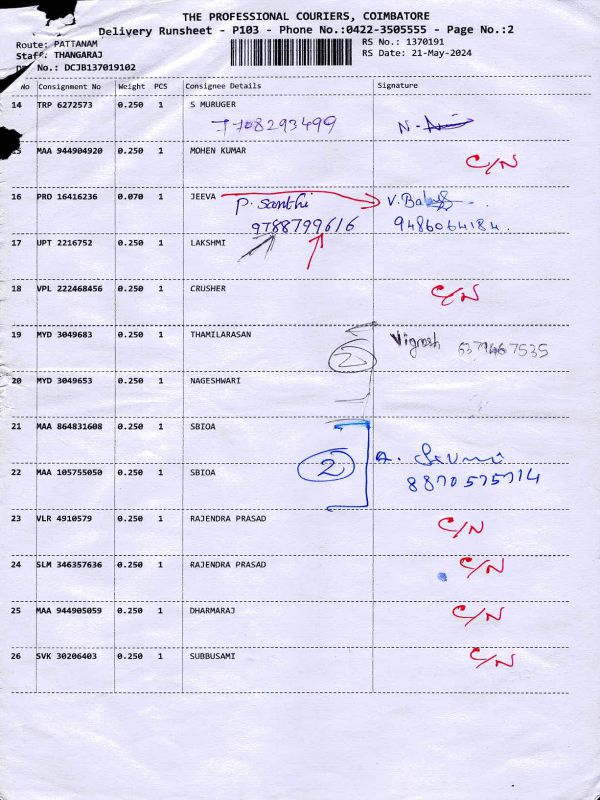 THE PROFESSIONAL COURIERS, COIMBATORE
Delivery Runsheet - P103 - Phone No.:0422-3505555 - Page No.:2
Route: PATTANAM RS No.: 1370191
Staff: THANGARAJ RS Date: 21-May-2024
No.: DCJB137019102
No Consignment No Weight PCS Consignee Details Signature
14 TRP 6272573 0.250 1 S MURUGER
7708293499 N.
15 MAA 944904920 0.250 1 MOHEN KUMAR
C/N
16 PRO 16416236 0.070 1 JEEVA
P. Santhi V. Balaji
9788799616 9486064184.
17 UPT 2216752 0.250 1 LAKSHMI
18 VPL 222468456 0.250 1 CRUSHER
C/N
19 MYD 3049683 0.250 1 THAMILARASAN
2 Vignesh 6379467535
20 MYD 3049653 0.250 1 NAGESHWARI
21 MAA 864831608 0.250 1 SBIOA
2 A.
22 MAA 105755050 0.250 1 SBIOA
8870575714
23 VLR 4910579 0.250 1 RAJENDRA PRASAD
C/N
24 SLM 346357636 0.250 1 RAJENDRA PRASAD
C/N
25 MAA 944905059 0.250 1 DHARMARAJ
C/N
26 SVK 30206403 0.250 1 SUBBUSAMI
C/N